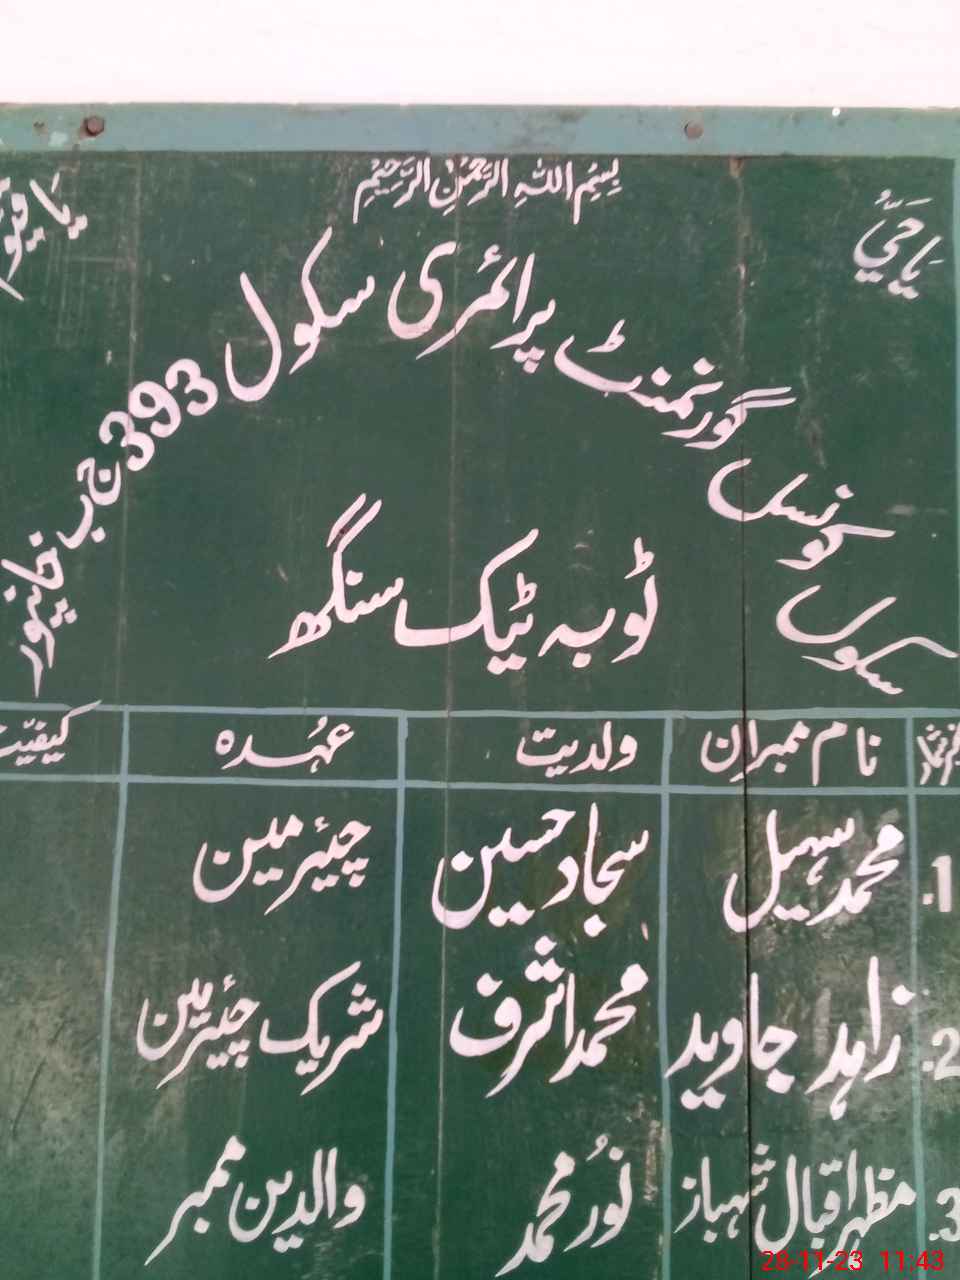 بِسْمِ اللّٰہِ الرَّحْمٰنِ الرَّحِيْمِ
يَا حَيُّ
سکول کونسل گورنمنٹ پرائمری سکول 393 ج ب خانپور
ٹوبہ ٹیک سنگھ
نام ممبران ولدیت عہُدہ کیفیّت
1. محمد سہیل سجاد حسین چیئرمین
2. زاہد جاوید محمد اشرف شریک چیئرمین
3. مظہر اقبال شہباز نوُر محمد والدین ممبر
28-11-23 11:43